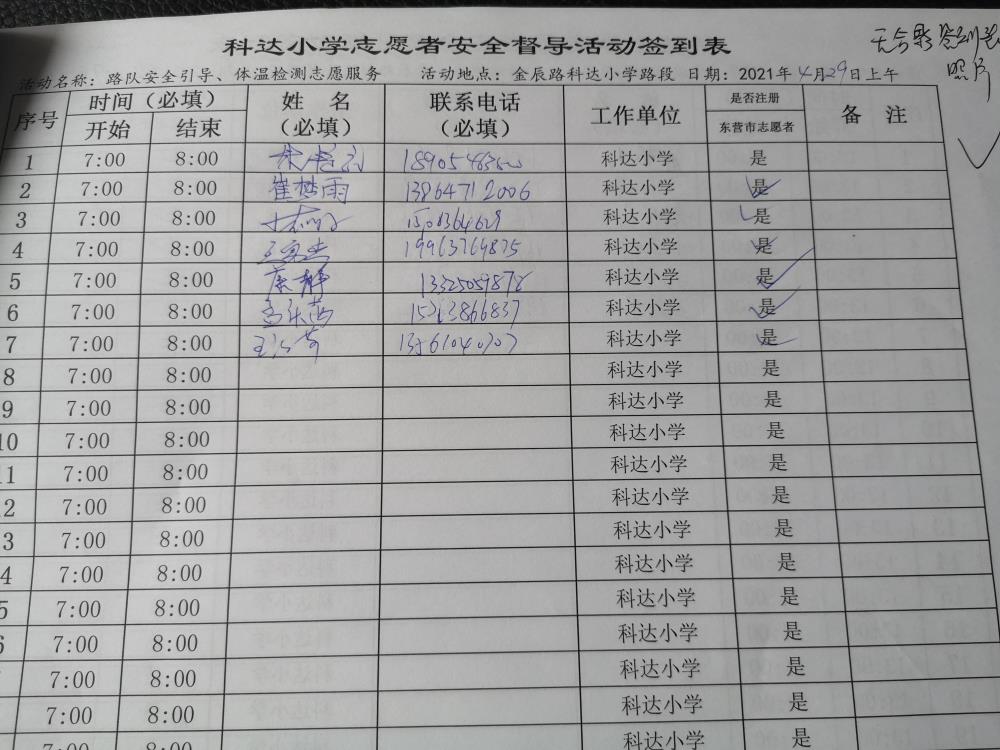 科达小学志愿者安全督导活动签到表
活动名称：路队安全引导、体温检测志愿服务 活动地点：金辰路科达小学路段 日期：2021年4月29日上午
序号 时间（必填） 姓名（必填） 联系电话（必填） 工作单位 是否注册东营市志愿者 备注
开始 结束
1 7:00 8:00 科达小学 是
2 7:00 8:00 崔梦雨 13864712006 科达小学 是
3 7:00 8:00 科达小学 是
4 7:00 8:00 19963769875 科达小学 是
5 7:00 8:00 13325059878 科达小学 是
6 7:00 8:00 15263866837 科达小学 是
7 7:00 8:00 科达小学 是
8 7:00 8:00 科达小学 是
9 7:00 8:00 科达小学 是
10 7:00 8:00 科达小学 是
11 7:00 8:00 科达小学 是
12 7:00 8:00 科达小学 是
3 7:00 8:00 科达小学 是
4 7:00 8:00 科达小学 是
5 7:00 8:00 科达小学 是
6 7:00 8:00 科达小学 是
7:00 8:00 科达小学 是
7:00 8:00 科达小学 是
7:00 8:00 科达小学 是